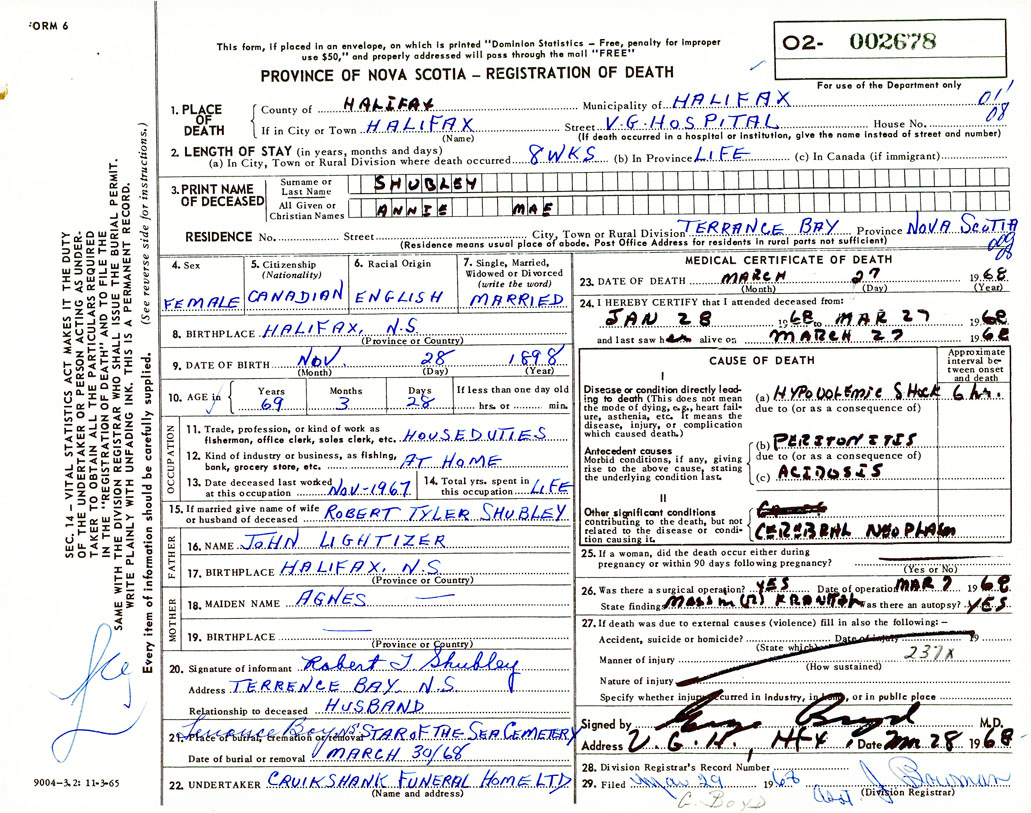 FORM 6
This form, if placed in an envelope, on which is printed "Dominion Statistics – Free, penalty for improper
use $50," and properly addressed will pass through the mail "FREE"
O2- 002678
For use of the Department only
PROVINCE OF NOVA SCOTIA – REGISTRATION OF DEATH
01'
08
1. PLACE OF DEATH
County of HALIFAX Municipality of HALIFAX
If in City or Town HALIFAX Street V.G. HOSPITAL House No.
(Name) (If death occurred in a hospital or institution, give the name instead of street and number)
2. LENGTH OF STAY (in years, months and days)
(a) In City, Town or Rural Division where death occurred 8 WKS (b) In Province LIFE (c) In Canada (if immigrant)
3. PRINT NAME OF DECEASED
Surname or Last Name SHUBLEY
All Given or Christian Names ANNIE MAE
RESIDENCE No. Street City, Town or Rural Division TERRANCE BAY Province NOVA SCOTIA
(Residence means usual place of abode. Post Office Address for residents in rural parts not sufficient)
SEC. 14 – VITAL STATISTICS ACT MAKES IT THE DUTY
OF THE UNDERTAKER OR PERSON ACTING AS UNDER-
TAKER TO OBTAIN ALL THE PARTICULARS REQUIRED
IN THE "REGISTRATION OF DEATH" AND TO FILE THE
SAME WITH THE DIVISION REGISTRAR WHO SHALL ISSUE THE BURIAL PERMIT.
WRITE PLAINLY WITH UNFADING INK. THIS IS A PERMANENT RECORD.
Every item of information should be carefully supplied. (See reverse side for instructions.)
4. Sex
FEMALE
5. Citizenship
(Nationality)
CANADIAN
6. Racial Origin
ENGLISH
7. Single, Married,
Widowed or Divorced
(write the word)
MARRIED
8. BIRTHPLACE HALIFAX, N.S.
(Province or Country)
9. DATE OF BIRTH NOV. 28 1898
(Month) (Day) (Year)
10. AGE in
Years Months Days If less than one day old
69 3 28 hrs. or min.
OCCUPATION
11. Trade, profession, or kind of work as
fisherman, office clerk, sales clerk, etc. HOUSEDUTIES
12. Kind of industry or business, as fishing,
bank, grocery store, etc. AT HOME
13. Date deceased last worked
at this occupation NOV-1967
14. Total yrs. spent in
this occupation LIFE
15. If married give name of wife
or husband of deceased ROBERT TYLER SHUBLEY
FATHER
16. NAME JOHN LIGHTIZER
17. BIRTHPLACE HALIFAX, N.S.
(Province or Country)
MOTHER
18. MAIDEN NAME AGNES —
19. BIRTHPLACE —
(Province or Country)
20. Signature of informant Robert T Shubley
Address TERRENCE BAY. N.S.
Relationship to deceased HUSBAND
Terrance Bay NS STAR OF THE SEA CEMETERY
21. Place of burial, cremation or removal
Date of burial or removal MARCH 30/68
22. UNDERTAKER CRUIKSHANK FUNERAL HOME LTD
(Name and address)
9004–3.2: 11-3-65
MEDICAL CERTIFICATE OF DEATH
23. DATE OF DEATH MARCH 27 1968
(Month) (Day) (Year)
24. I HEREBY CERTIFY that I attended deceased from:
JAN 28 1968 to MAR 27 1968
and last saw her alive on MARCH 27 1968
CAUSE OF DEATH
Approximate
interval be-
tween onset
and death
I
Disease or condition directly lead-
ing to death (This does not mean
the mode of dying, e.g., heart fail-
ure, asthenia, etc. It means the
disease, injury, or complication
which caused death.)
(a) HYPOVOLEMIC SHOCK 6 hr.
due to (or as a consequence of)
Antecedent causes
Morbid conditions, if any, giving
rise to the above cause, stating
the underlying condition last.
(b) PERITONITIS
due to (or as a consequence of)
(c) ACIDOSIS
II
Other significant conditions
contributing to the death, but not
related to the disease or condi-
tion causing it.
CEREBRAL NEOPLASM
25. If a woman, did the death occur either during
pregnancy or within 90 days following pregnancy?
(Yes or No)
26. Was there a surgical operation? YES Date of operation MAR 7 1968
State findings MASS IN (R) FRONTAL Was there an autopsy? YES
27. If death was due to external causes (violence) fill in also the following: –
Accident, suicide or homicide? Date of injury 19
(State which)
237X
Manner of injury
(How sustained)
Nature of injury
Specify whether injury occurred in industry, in home, or in public place
Signed by George Boyd M.D.
Address V.G.H., Hfx. Date Mar 28 1968
28. Division Registrar's Record Number
29. Filed Mar 29 1968
(Division Registrar)
G. BOYD